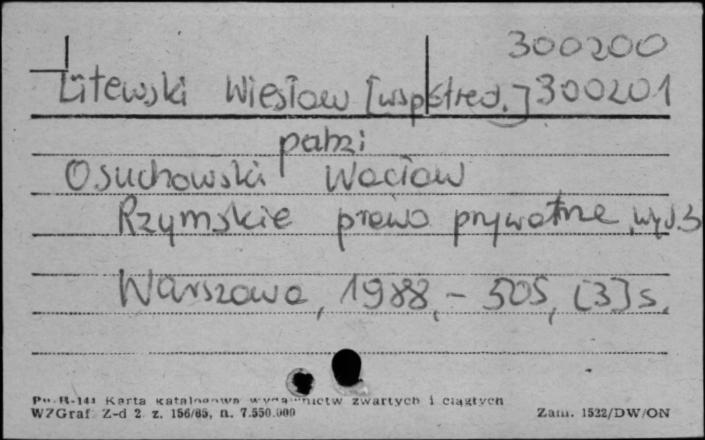 300200
Litewski Wiesław [wsp. i red.] 300201
patrz
Osuchowski Wacław
Rzymskie prawo prywatne, wyd. 3
Warszawa, 1988, - 505, [3] s.
Pu-B-144 Karta katalogowa wydawnictw zwartych i ciągłych
WZGraf. Z-d 2. z. 156/85, n. 7.550.000 Zam. 1522/DW/ON